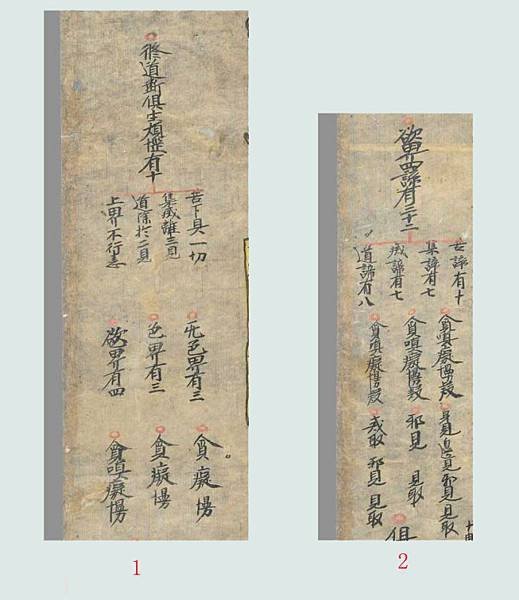 修道断俱生煩惱有十
苦下具一切
集滅離三見
道除於二見
上界不行恚
无色界有三
色界有三
欲界有四
貪癡慢
貪癡慢
貪嗔癡慢
1
欲界四諦有三十二
苦諦有十
集諦有七
滅諦有七
道諦有八
貪嗔癡慢疑
貪嗔癡慢疑
貪嗔癡慢疑
身見邊見邪見見取
邪見 見取
戒取 邪見 見取
俱
2